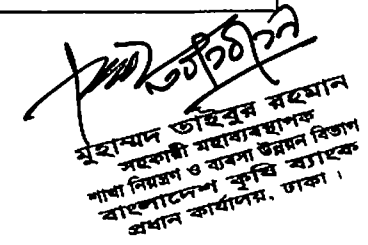 মুহাম্মদ তাইবুর রহমান
সহকারী মহাব্যবস্থাপক
শাখা নিয়ন্ত্রণ ও ব্যবসা উন্নয়ন বিভাগ
বাংলাদেশ কৃষি ব্যাংক
প্রধান কার্যালয়, ঢাকা ।